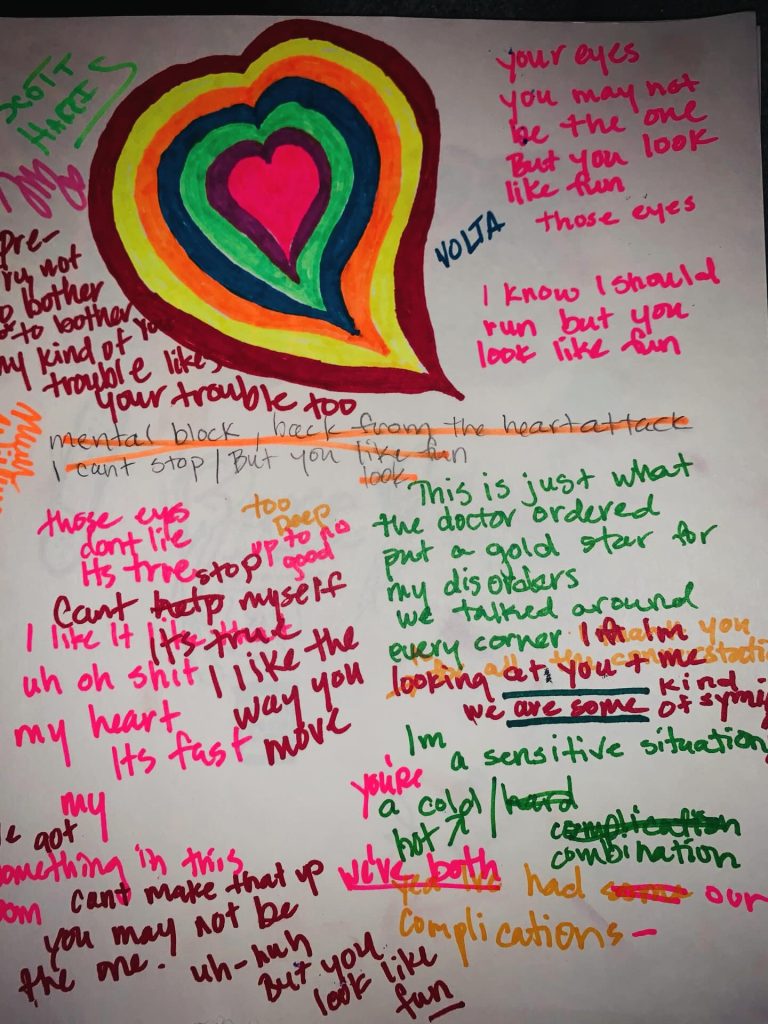 SCOTT
HARRIS
your eyes
you may not
be the one
But you look
like fun
those eyes
VOLTA
I know I should
run but you
look like fun
Pre-
try not
to bother
to bother
my kind of
trouble likes
your trouble too
mental block, back from the heart attack
I cant stop / But you like fun
look
those eyes
dont lie
Its true
too
Deep
up to no
good
stop
Cant help myself
I like it like
Its true
uh oh shit
I like the
way you
move
my heart
Its fast
my
got
something in this
room
cant make that up
you may not be
the one.
uh-huh
But you
look like
fun
This is just what
the doctor ordered
put a gold star for
my disorders
we talked around
every corner
I'm
looking at you + me
we are some kind
of
Im
a sensitive situation
you're
a cold / hard
hot
complication
combination
we've both
yea I've had some our
complications -